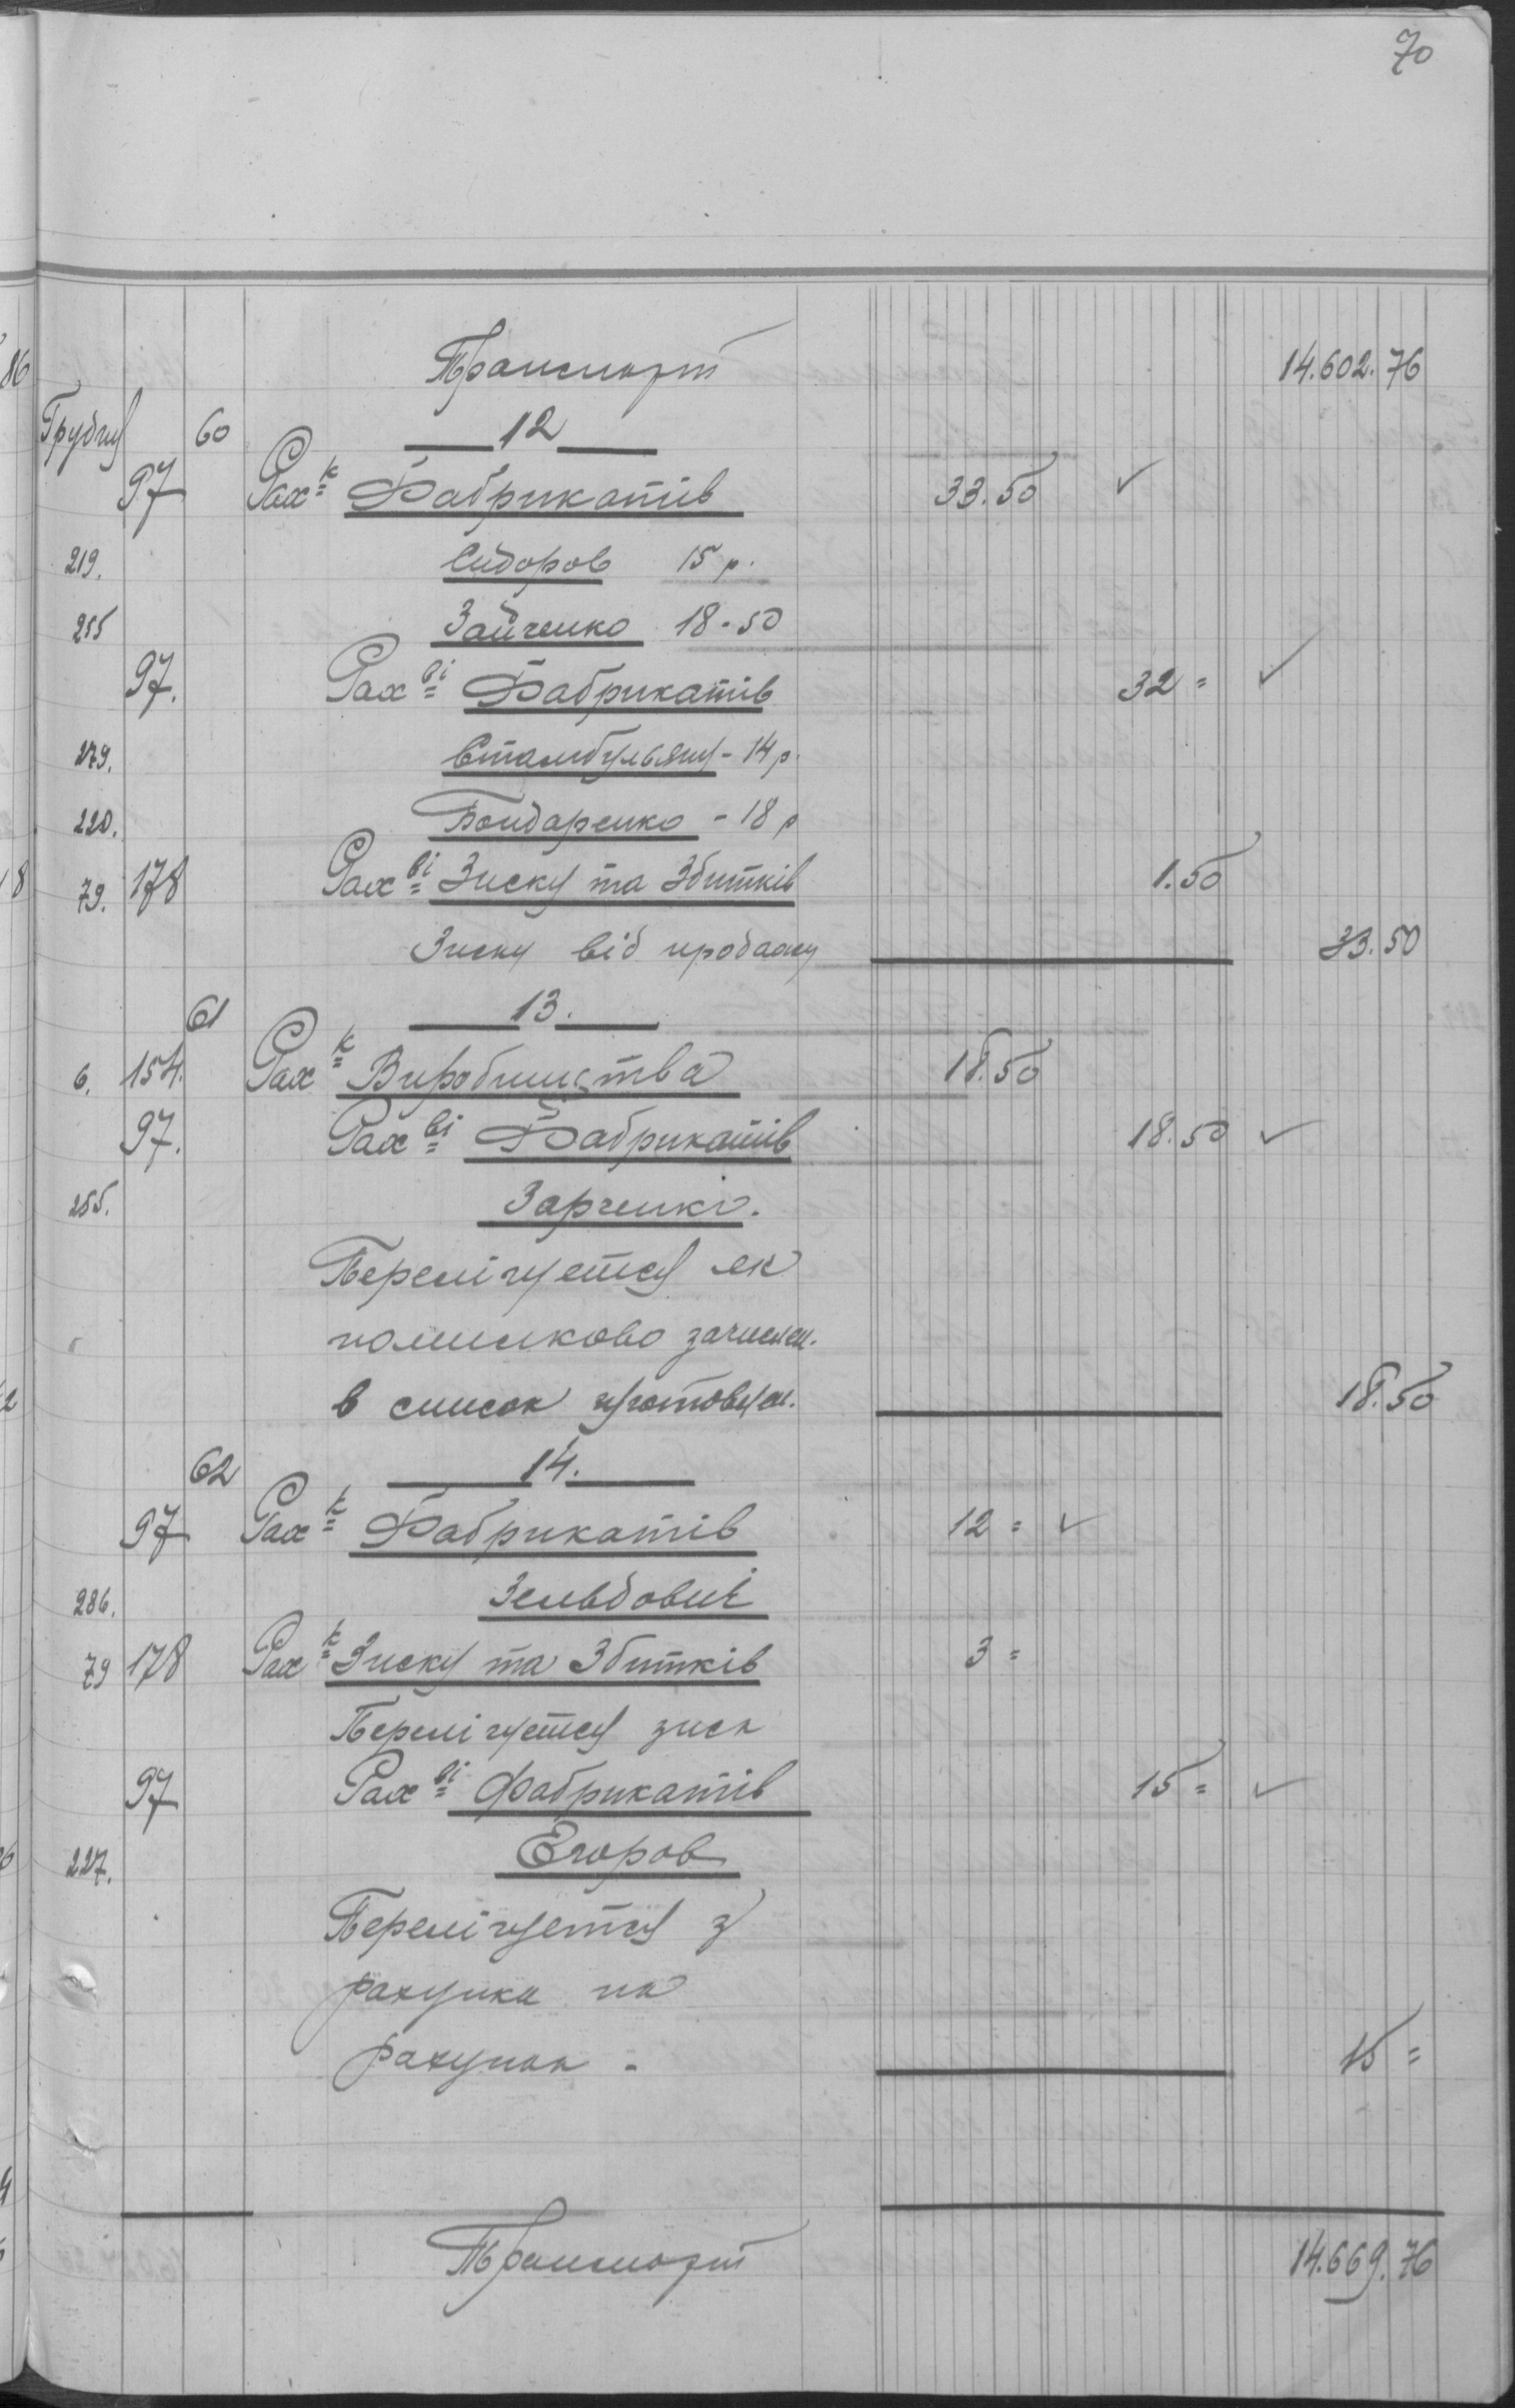 70
Транспорт 14.602.76
Грудня 60 12
97 Рах-к Фабрикатів 33.50 ✓
219. Сидоров 15 р.
255 Зайченко 18-50
97. Рах-ві Фабрикатів 32 = ✓
279. Стамбульяну - 14 р.
220. Бондаренко - 18 р
79. 178 Рах-ві Зиску та Збитків 1.50
Зиску від продажу 33.50
61 13.
6. 154. Рах-к Виробництва 18.50
97. Рах-ві Фабрикатів 18.50 ✓
255. Зарченко.
Перелічуется як
помилково зачислен.
в список 18.50
62 14.
97 Рах-к Фабрикатів 12 = ✓
286. Зельдович
79 178 Рах-к Зиску та Збитків 3 =
Перелічуется зиск
97 Рах-ві Фабрикатів 15 = ✓
227. Егоров
Перелічуется з
рахунка на
рахунок - 15 =
Транспорт 14.669.76